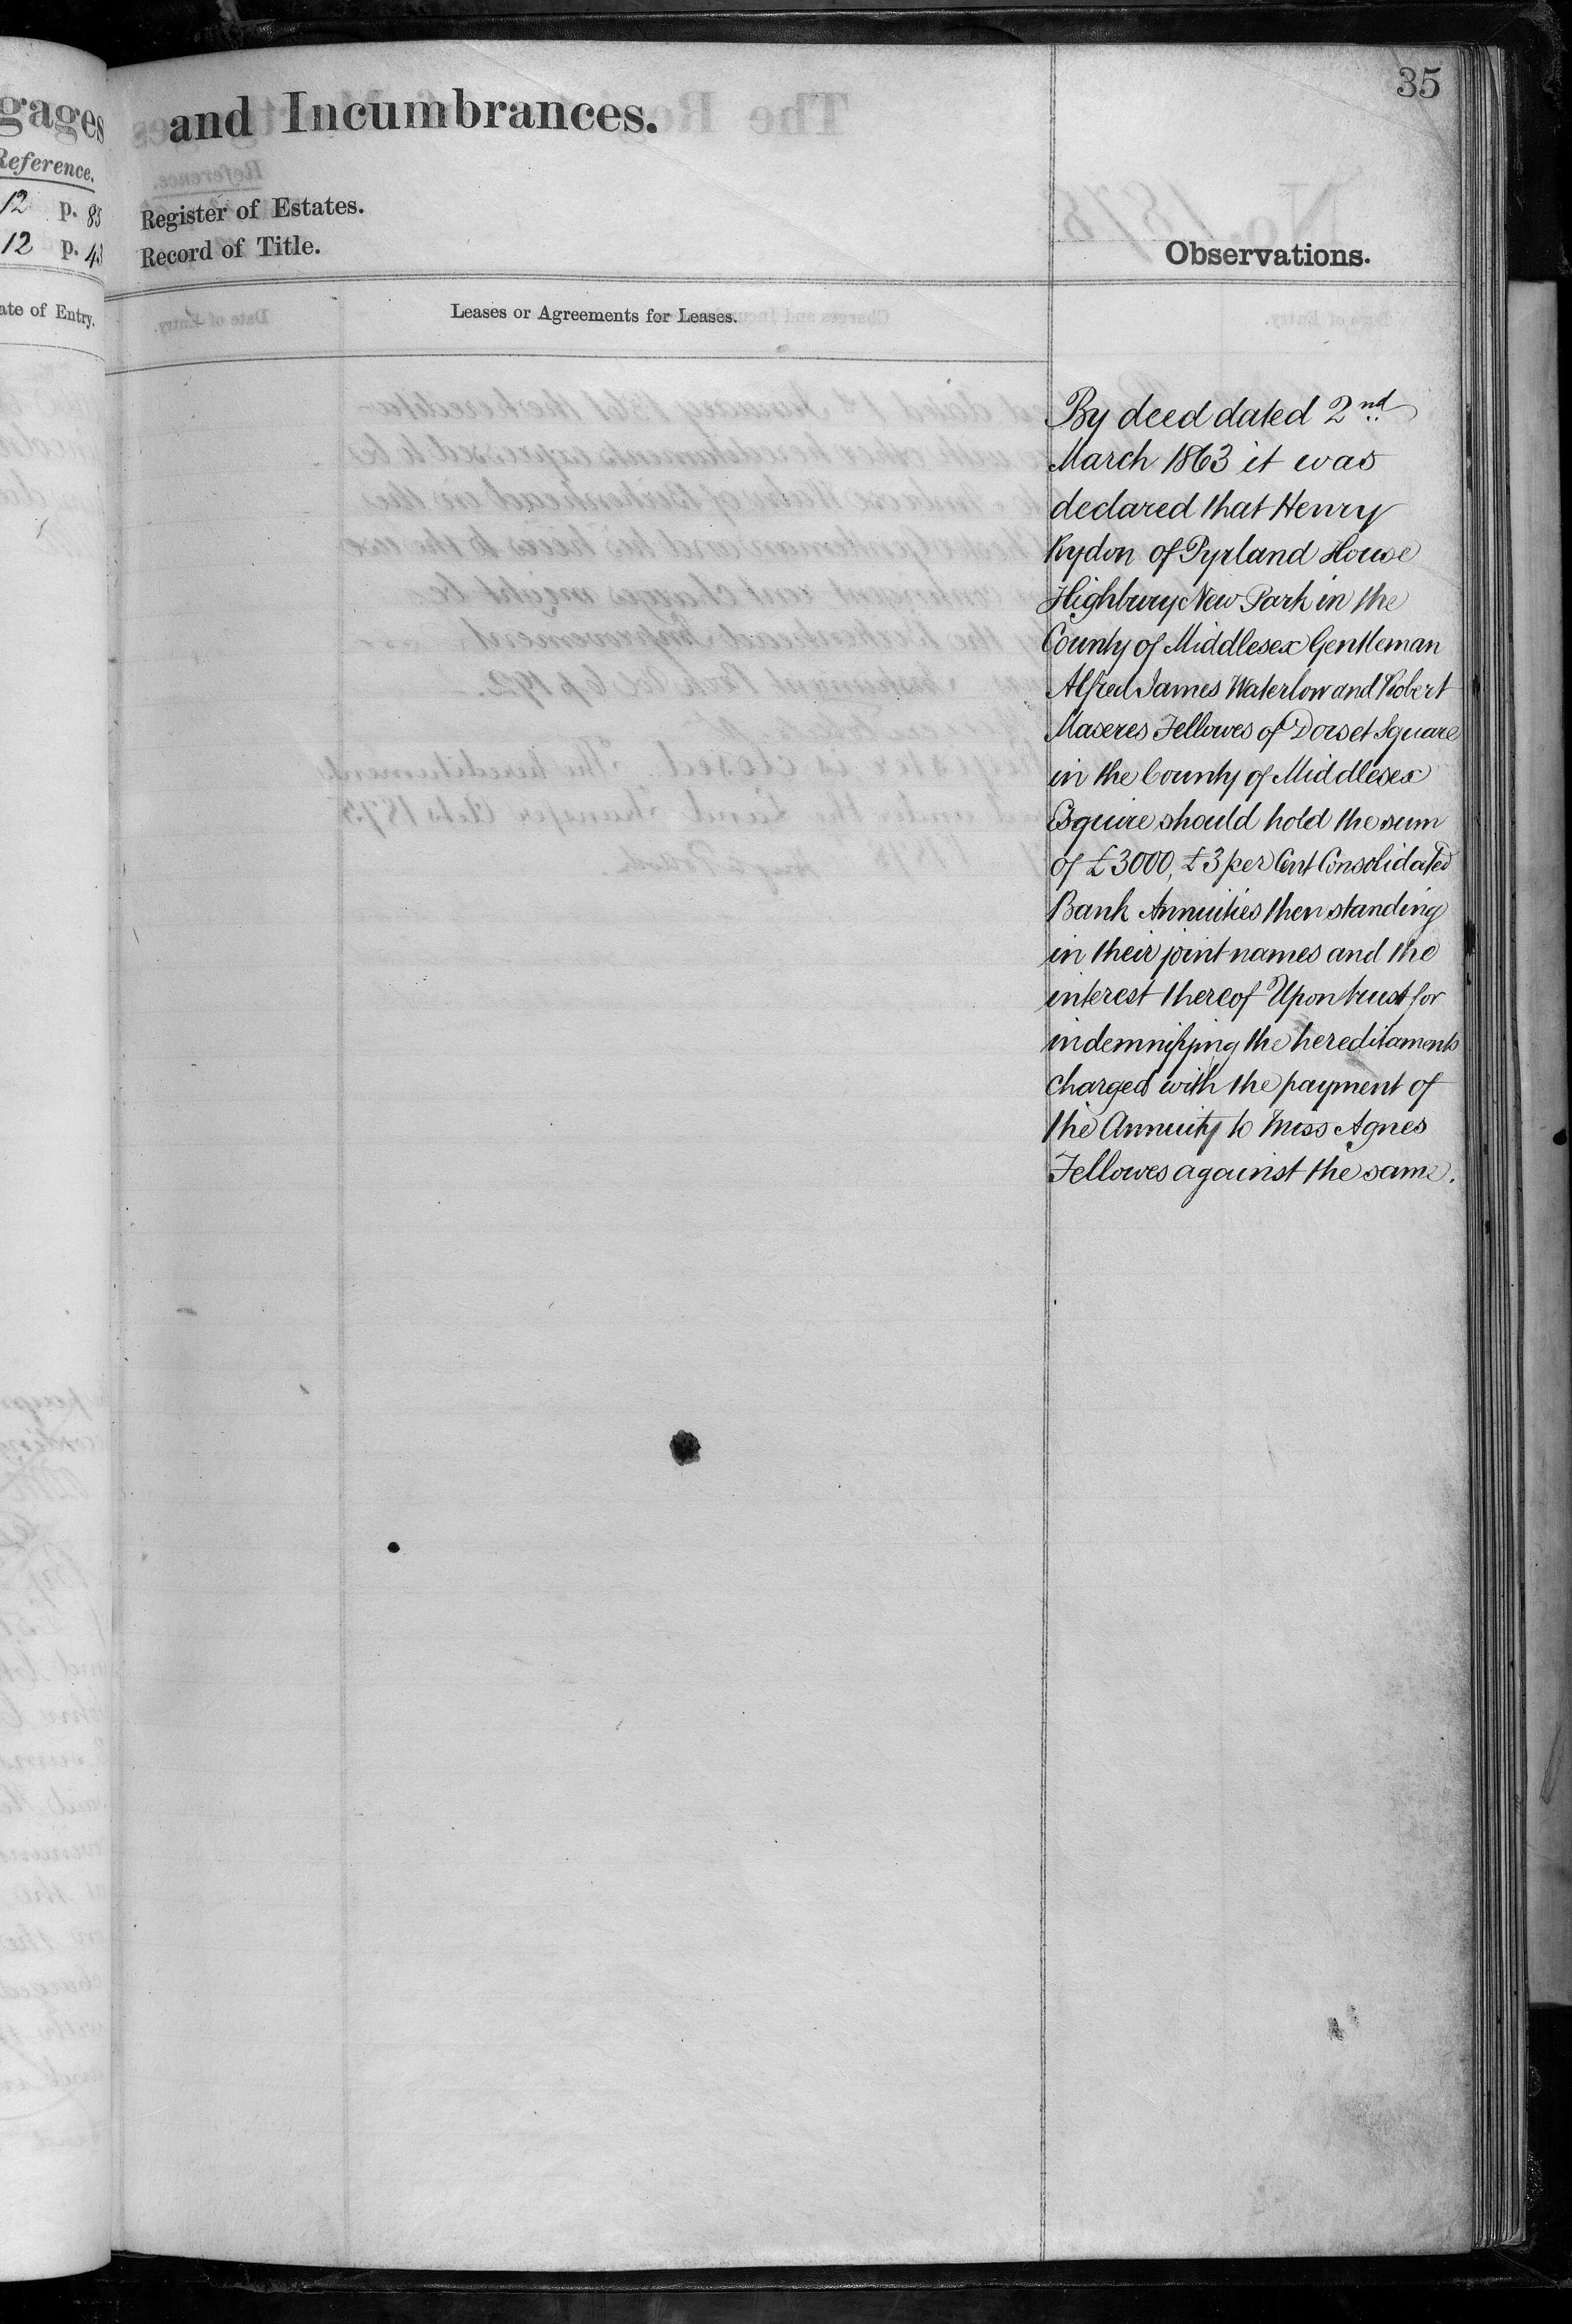 35
gages
and Incumbrances.
Reference.
12 p. 85
Register of Estates.
12 p. 43
Record of Title.
Observations.
ate of Entry.
Leases or Agreements for Leases.
By deed dated 2nd
March 1863 it was
declared that Henry
Rydon of Pyrland House
Highbury New Park in the
County of Middlesex Gentleman
Alfred James Waterlow and Robert
Maseres Fellowes of Dorset Square
in the County of Middlesex
Esquire should hold the sum
of £3000, £3 per Cent Consolidated
Bank Annuities then standing
in their joint names and the
interest thereof Upon trust for
indemnifying the hereditaments
charged with the payment of
the Annuity to Miss Agnes
Fellowes against the same.